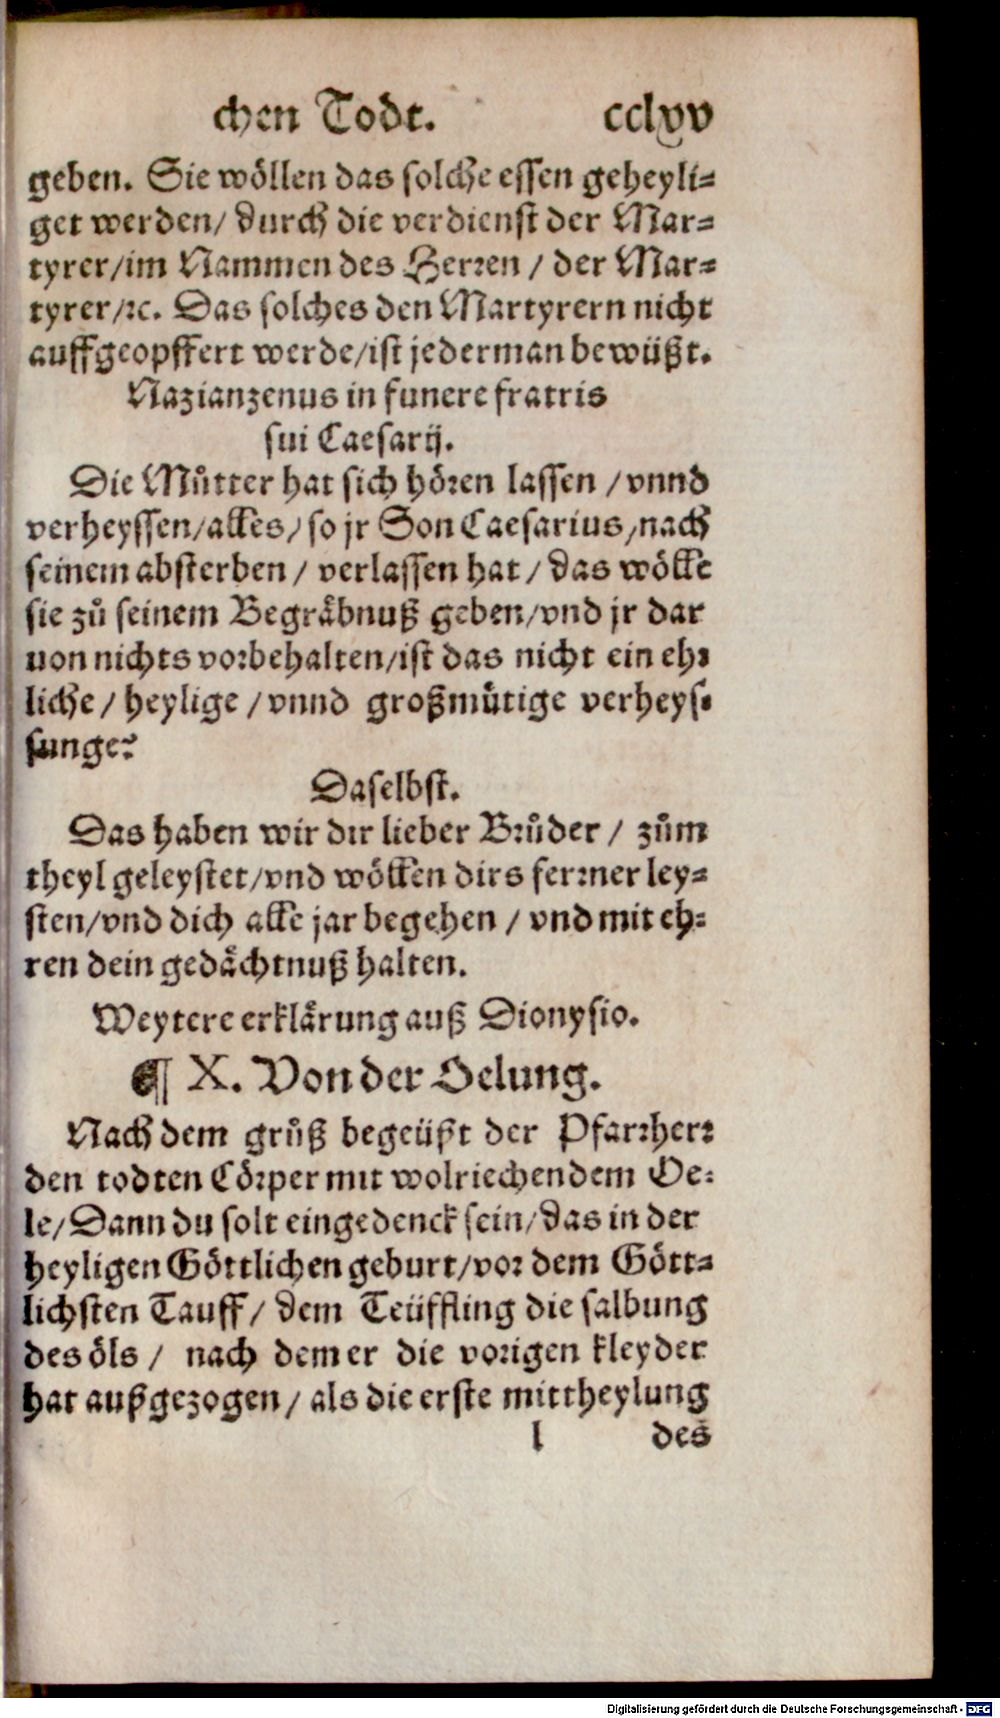 chen Todt. cclxv
geben. Sie wöllen das solche essen geheyli-
get werden/ durch die verdienst der Mar-
tyrer/im Nammen des Herren / der Mar-
tyrer/ꝛc. Das solches den Martyrern nicht
auffgeopffert werde/ist jederman bewüßt.
Nazianzenus in funere fratris
sui Caesarij.
Die Můtter hat sich hören lassen / vnnd
verheyssen/alles/ so jr Son Caesarius/nach
seinem absterben / verlassen hat / das wölle
sie zů seinem Begräbnuß geben/vnd jr dar
uon nichts vorbehalten/ist das nicht ein eh-
liche / heylige / vnnd großmütige verheys-
sunge?
Daselbst.
Das haben wir dir lieber Brůder / zům
theyl geleystet/vnd wöllen dirs ferrner ley-
sten/vnd dich alle jar begehen / vnd mit eh-
ren dein gedächtnuß halten.
Weytere erklärung auß Dionysio.
¶ X. Von der Oelung.
Nach dem grůß begeüßt der Pfarrherr
den todten Cörper mit wolriechendem Oe-
le/ Dann du solt eingedenck sein/das in der
heyligen Göttlichen geburt/vor dem Gött-
lichsten Tauff / dem Teüffling die salbung
des öls / nach dem er die vorigen kleyder
hat außgezogen / als die erste mittheylung
l des
Digitalisierung gefördert durch die Deutsche Forschungsgemeinschaft - DFG